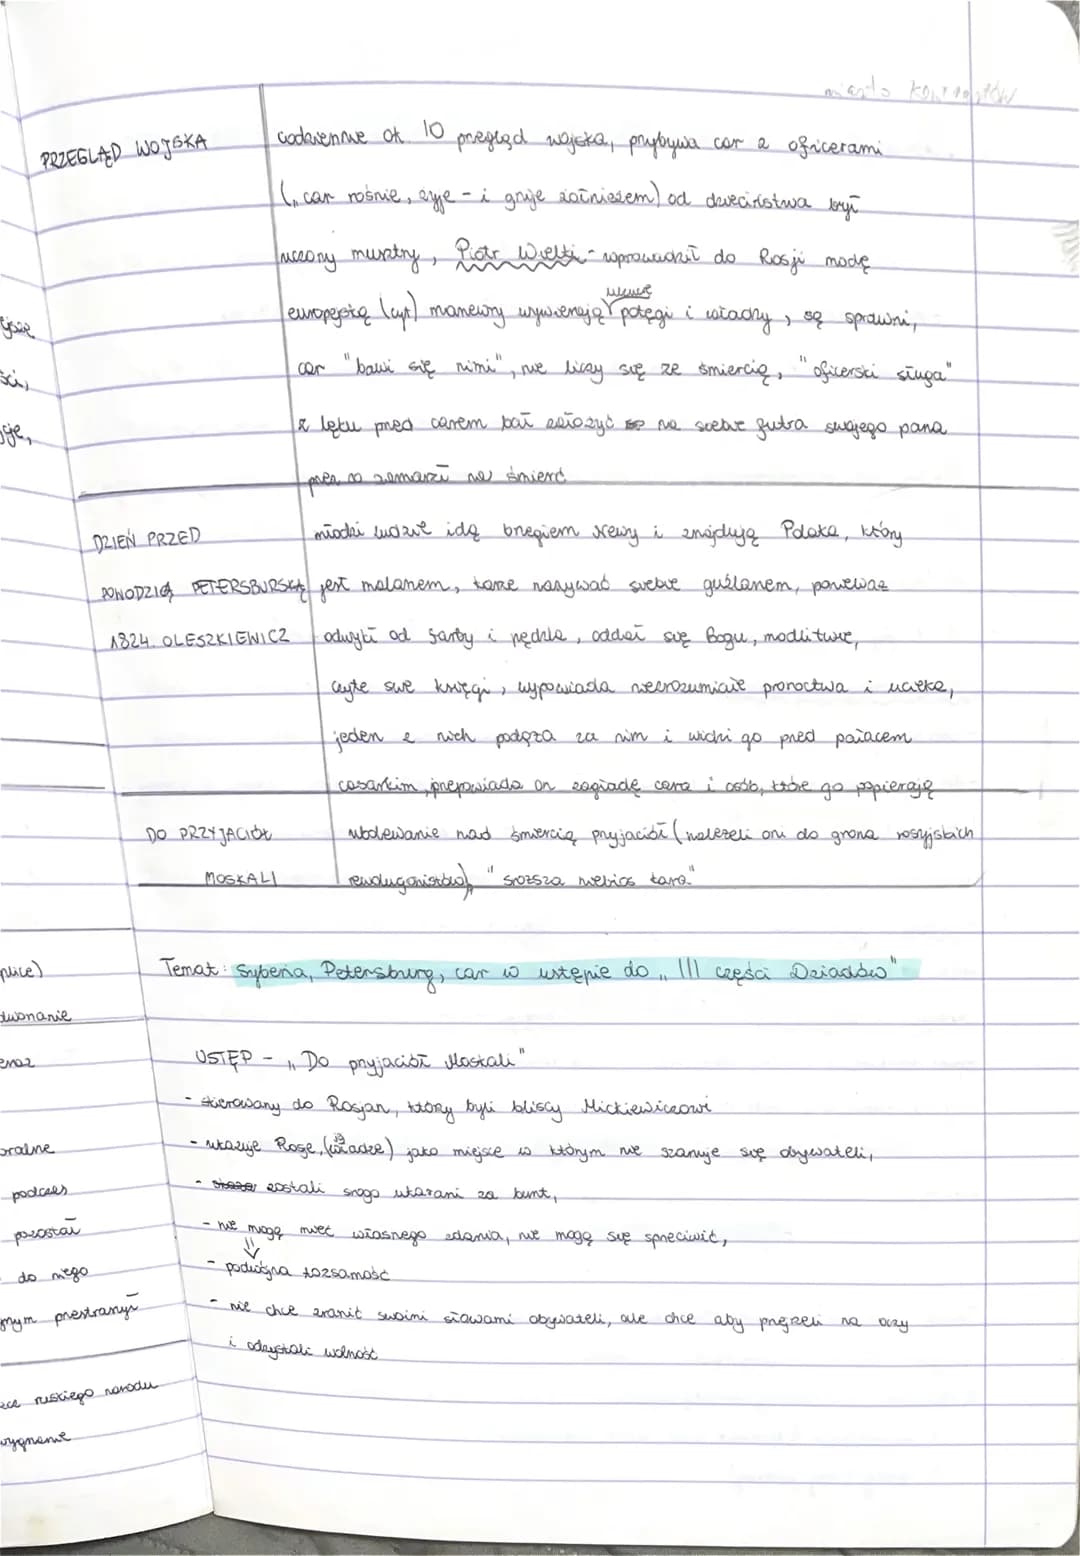 miasto kontrastów
PRZEGLĄD WOJSKA
codziennie ok. 10 przegląd wojska, przybywa car z oficerami
(„car rośnie, żyje - i gnije żołnierzem) od dzieciństwa był
uczony musztry, Piotr Wielki - wprowadził do Rosji modę
europejską (cyt) manewry wywierają potęgi i władzy, są sprawni,
car "bawi się nimi", nie liczy się ze śmiercią, "oficerski sługa"
z lęku przed carem bał założyć na siebie futra swojego pana
przez co zamarzł na śmierć
DZIEŃ PRZED
POWODZIĄ PETERSBURSKĄ
1824. OLESZKIEWICZ
młodzi ludzie idą brzegiem Newy i znajdują Polaka, który
jest malarzem, każe nazywać siebie guślarzem, ponieważ
odwykł od farby i pędzla, oddał się Bogu, modlitwie,
czyta swe księgi, wypowiada niezrozumiałe proroctwa i ucieka,
jeden z nich podąża za nim i widzi go przed pałacem
cesarkim, przepowiada on zagładę cara i osób, które go popierają
DO PRZYJACIÓŁ
MOSKALI
ubolewanie nad śmiercią przyjaciół (należeli oni do grona rosyjskich
rewolucjonistów), "sroższa niebios kara."
Temat: Syberia, Petersburg, car w ustępie do „III części Dziadów"
USTĘP - „Do przyjaciół Moskali"
- skierowany do Rosjan, którzy byli bliscy Mickiewiczowi
- ukazuje Rosję, (władzę) jako miejsce w którym nie szanuje się obywateli,
- zostali srogo ukarani za bunt,
- nie mogą mieć własnego zdania, nie mogą się sprzeciwić,
- podwójna tożsamość
- nie chce zranić swoimi słowami obywateli, ale chce aby przejrzeli na oczy
i odzyskali wolność
ści,
plice)
podczas
pozostał
do niego
ruskiego narodu
wygnanie